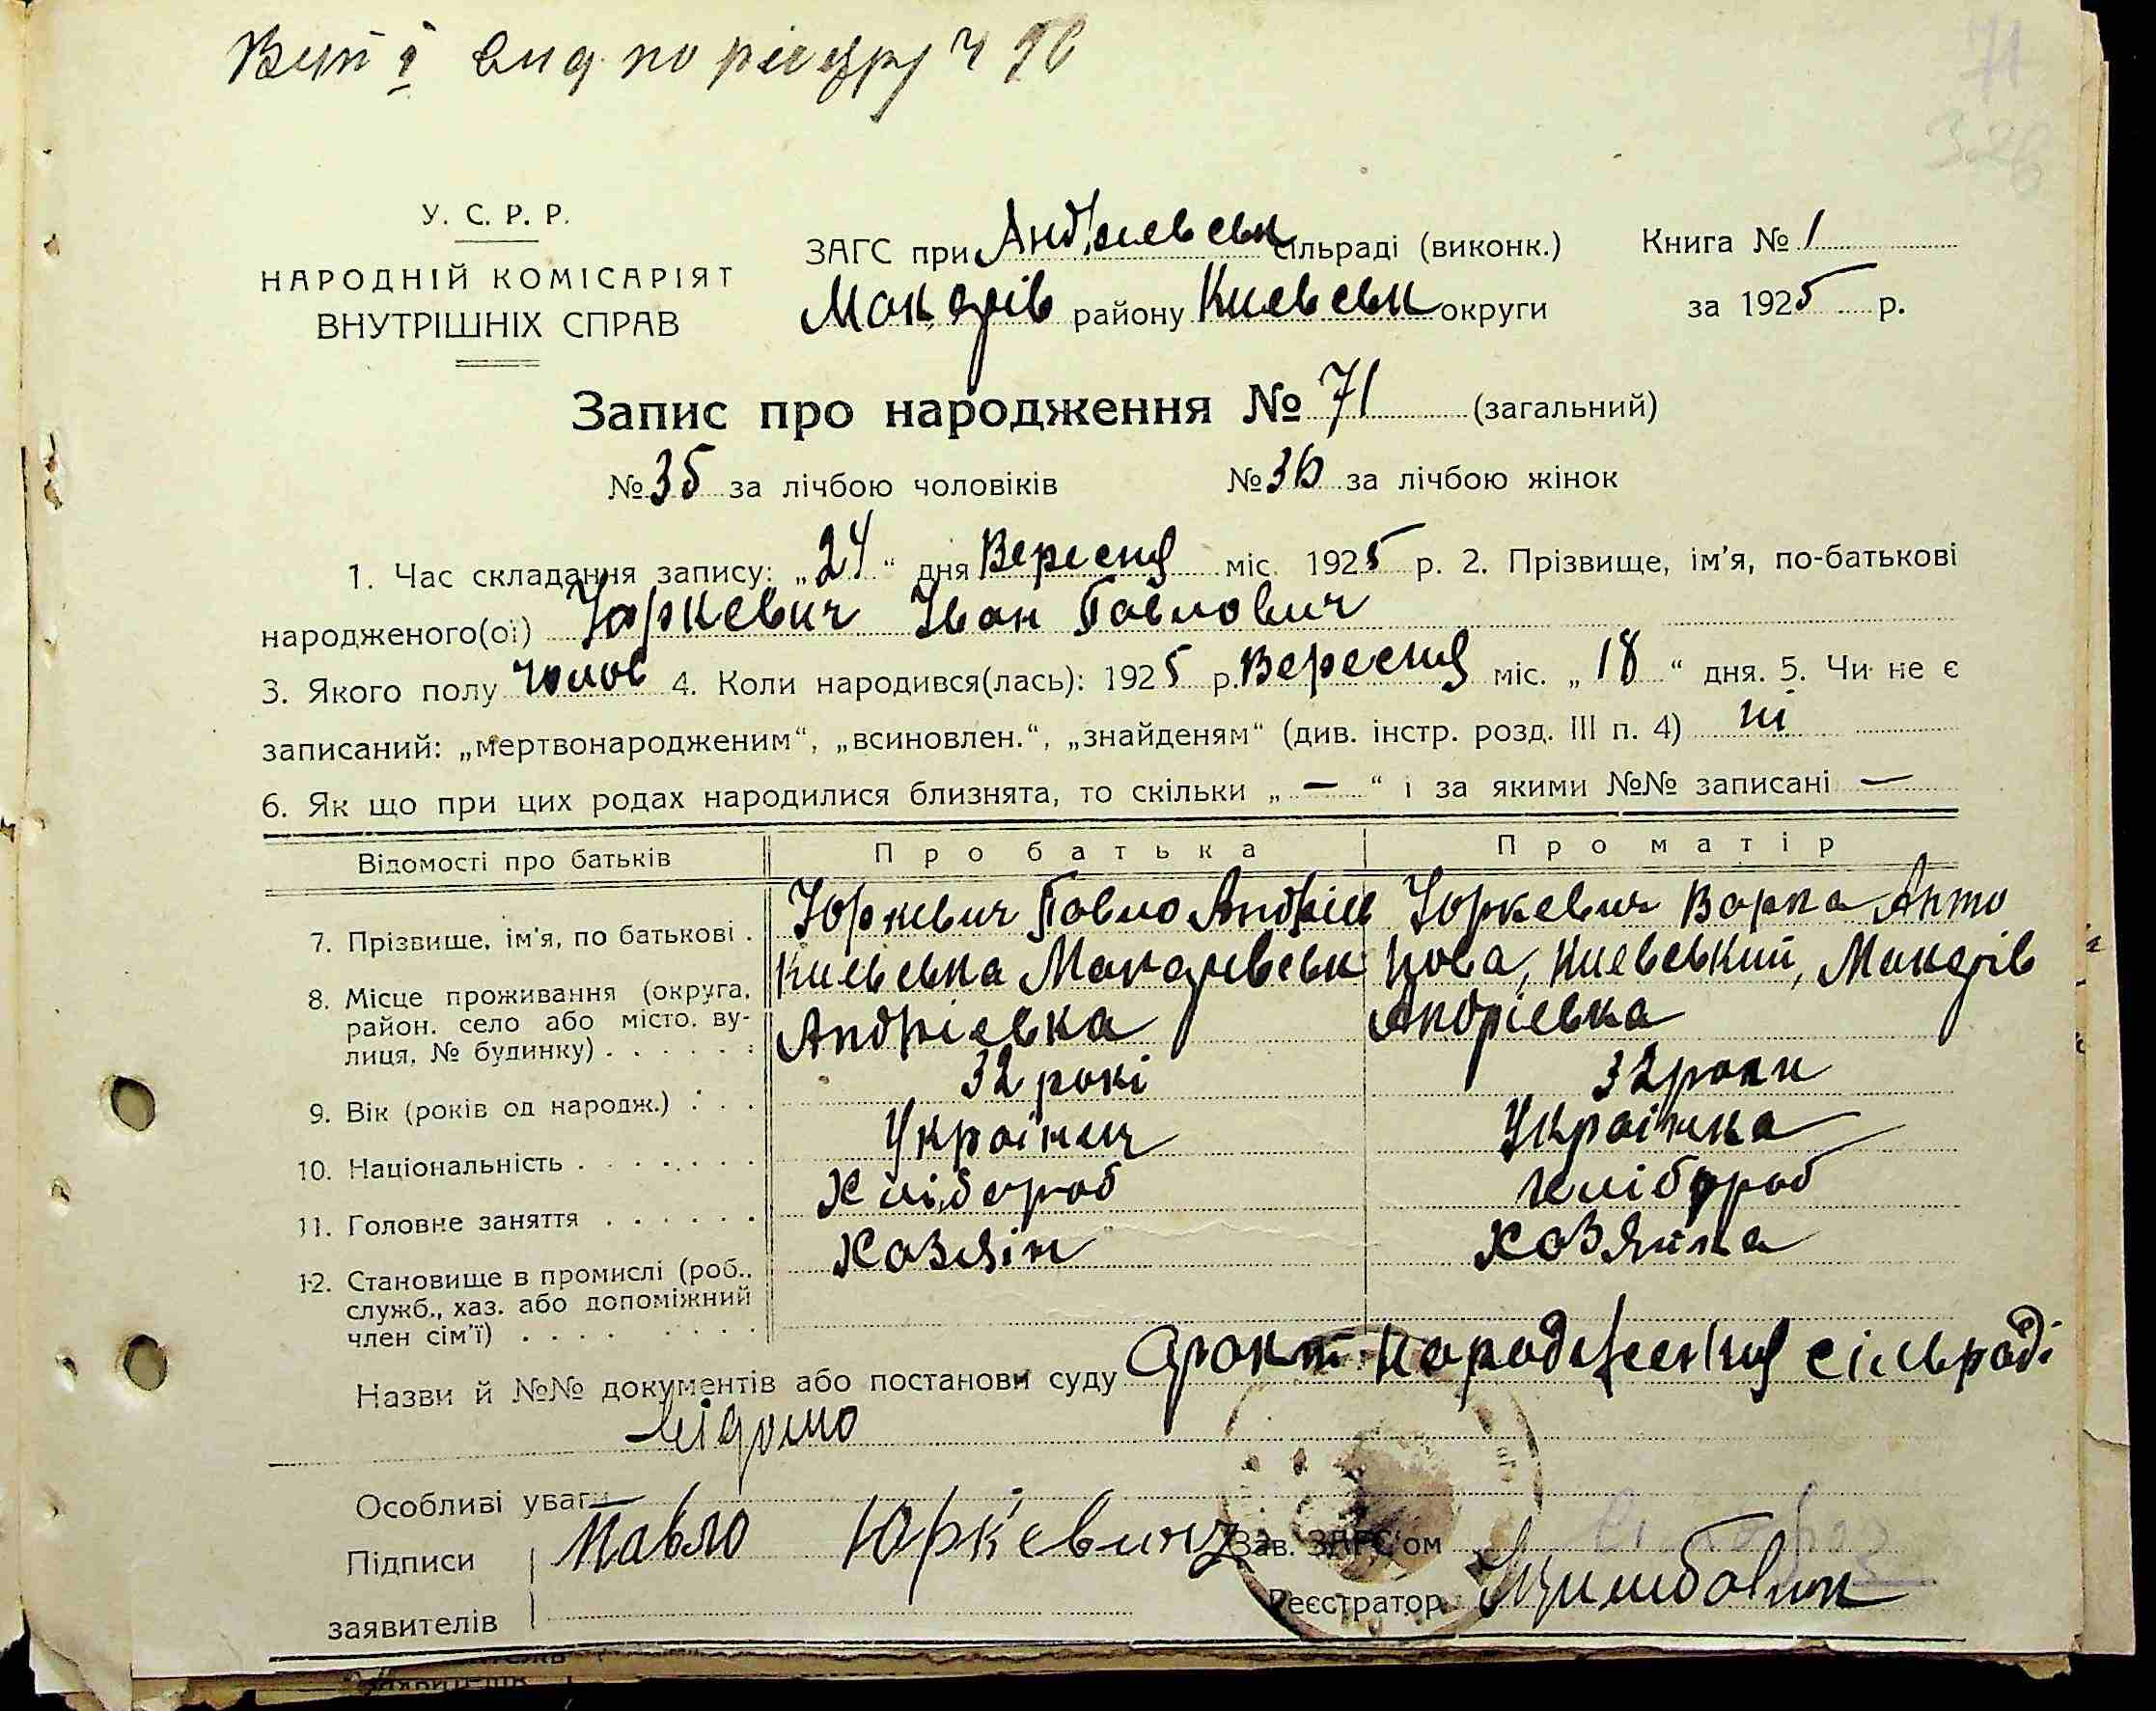 71
У. С. Р. Р.
НАРОДНІЙ КОМІСАРІЯТ
ВНУТРІШНІХ СПРАВ
ЗАГС при Андріиевськ сільраді (виконк.)
Макарів району Киевськ округи
Книга № 1
за 1925 р.
Запис про народження № 71 (загальний)
№ 35 за лічбою чоловіків № 36 за лічбою жінок
1. Час складання запису: „24“ дня Вересня міс. 1925 р. 2. Прізвище, ім'я, по-батькові
народженого(ої) Юркевич Іван Павлович
3. Якого полу чолов 4. Коли народився(лась): 1925 р. Вересня міс. „18“ дня. 5. Чи не є
записаний: „мертвонародженим“, „всиновлен.“, „знайденям“ (див. інстр. розд. III п. 4) ні
6. Як що при цих родах народилися близнята, то скільки „—“ і за якими №№ записані —
Відомості про батьків Про батька Про матір
7. Прізвище, ім'я, по батькові . Юркевич Павло Андріів Юркевич Варка Анто
8. Місце проживання (округа, Киевська Макарівськ нова, Киевський, Макарів
район, село або місто, ву- Андріевка Андріевка
лиця, № будинку) . . . . . .
9. Вік (років од народж.) . . . 32 рокі 32 роки
10. Національність . . . . . . . Украінец Украінка
11. Головне заняття . . . . . . Хлібороб Хлібороб
12. Становище в промислі (роб., Хозяін Хозяйка
служб., хаз. або допоміжний
член сім'ї) . . . . . . . . .
Назви й №№ документів або постанови суду факт народження сільраді
відомо
Особливі уваги —
Підписи Павло Юркевич Зав. ЗАГС'ом
заявителів Реєстратор